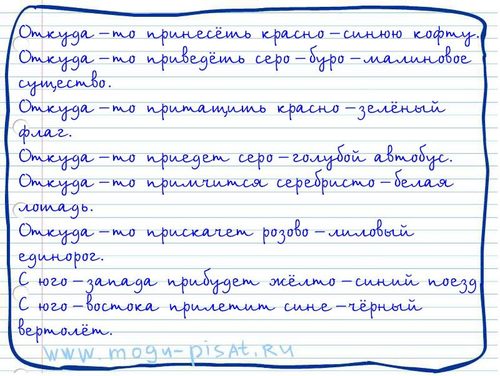 Откуда-то принесёть красно-синюю кофту.
Откуда-то приведёть серо-буро-малиновое
существо.
Откуда-то притащить красно-зелёный
флаг.
Откуда-то приедет серо-голубой автобус.
Откуда-то примчится серебристо-белая
лошадь.
Откуда-то прискачет розово-лиловый
единорог.
С юго-запада прибудет жёлто-синий поезд
С юго-востока прилетит сине-чёрный
вертолёт.
www.mogu-pisat.ru